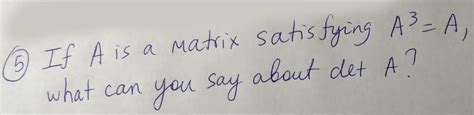 ⑤ If A is a matrix satisfying A³ = A,
what can you say about det A?